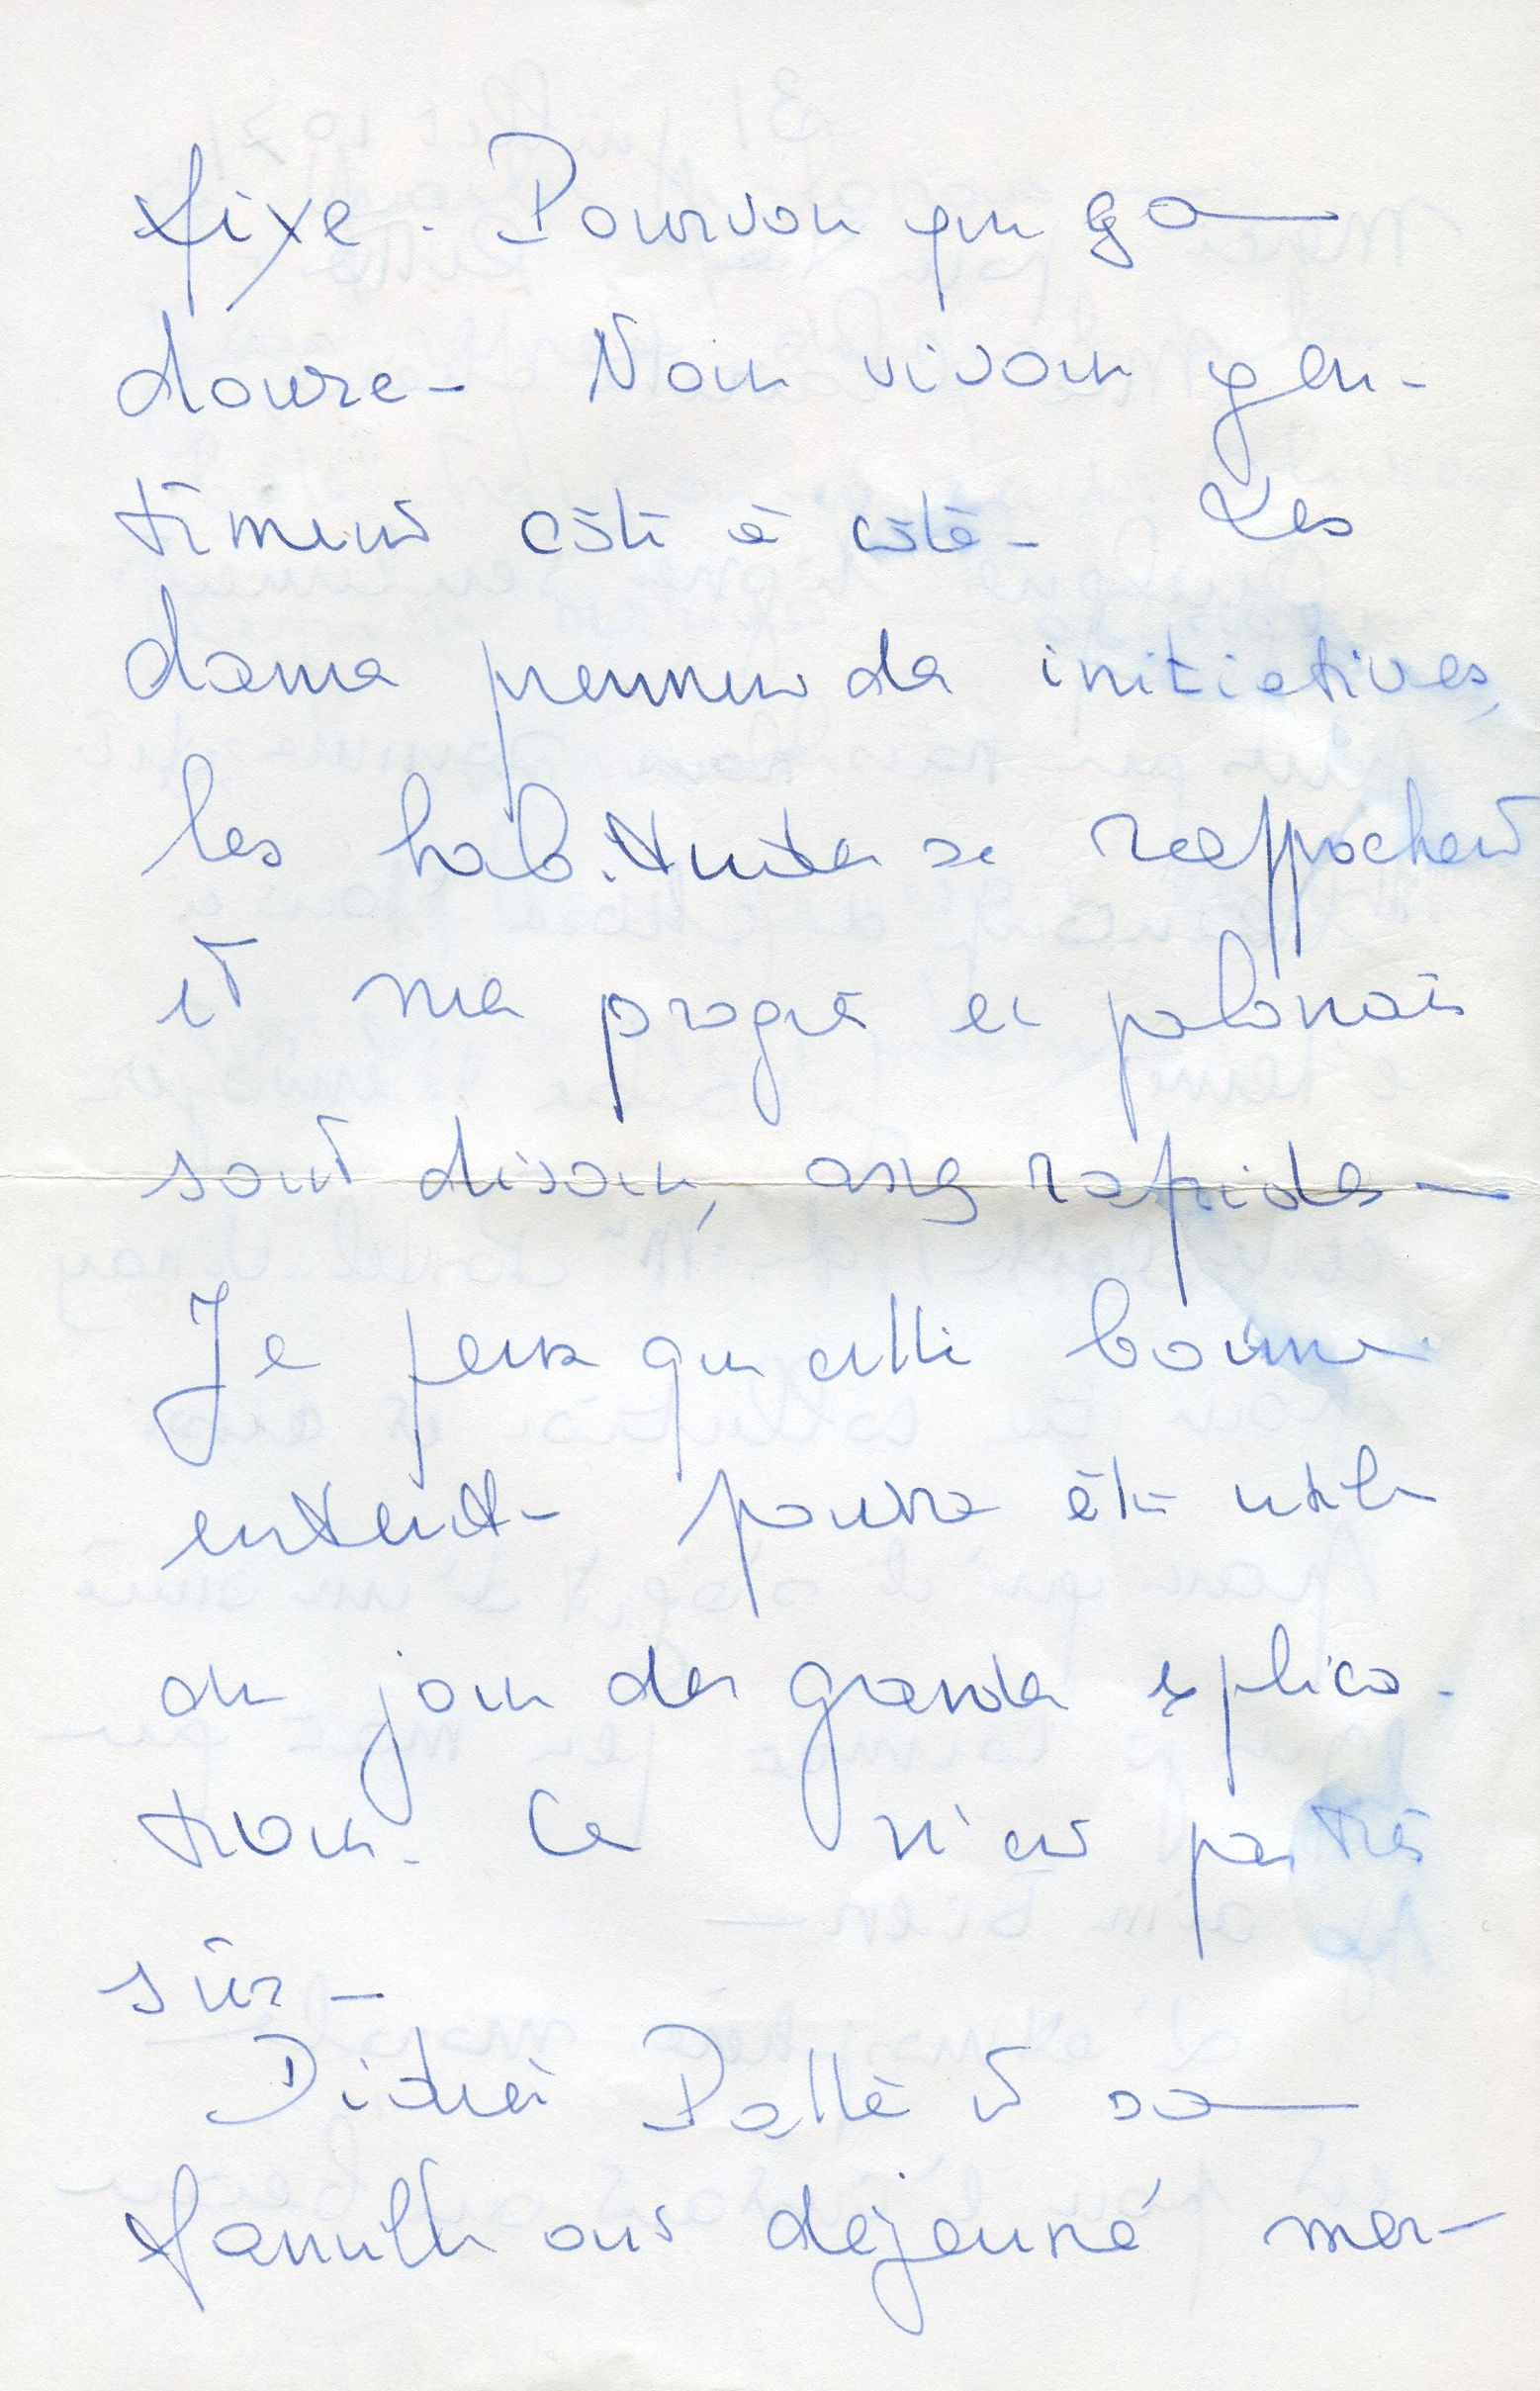 fixe. Pourvou que ça
doure - Nous vivons gen-
timent côte à côte - Les
dames prennent des initiatives,
les habitudes se rapprochent
et mes progrès en polonais
sont disons, assez rapides -
Je pense que cette bonne
entente - pourra être utile
au jour des grandes explica-
tions. Ce n'est pas très
sûr -
Didier et sa
famille ont déjeuné mer-